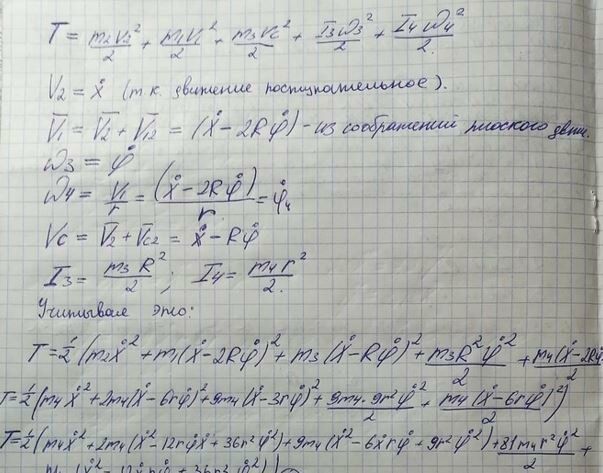 T = m₂V₂²/2 + m₁V₁²/2 + m₃Vc²/2 + I₃ω₃²/2 + I₄ω₄²/2.
V₂ = ẋ (т.к. движение поступательное).
V̄₁ = V̄₂ + V̄₁₂ = (ẋ - 2Rφ̇) - из соображений плоского движ.
ω₃ = φ̇
ω₄ = V₁/r = (ẋ - 2Rφ̇)/r = φ̇₄
Vc = V̄₂ + V̄c₂ = ẋ - Rφ̇
I₃ = m₃R²/2 ; I₄ = m₄r²/2.
Учитывая это:
T = 1/2 (m₂ẋ² + m₁(ẋ - 2Rφ̇)² + m₃(ẋ - Rφ̇)² + m₃R²φ̇²/2 + m₄(ẋ - 2Rφ̇
T = 1/2 (m₄ẋ² + 2m₄(ẋ - 6rφ̇)² + 9m₄(ẋ - 3rφ̇)² + 9m₄·9r²φ̇²/2 + m₄(ẋ - 6rφ̇)²/2)
T = 1/2 (m₄ẋ² + 2m₄(ẋ² - 12rφ̇ẋ + 36r²φ̇²) + 9m₄(ẋ² - 6ẋrφ̇ + 9r²φ̇²) + 81m₄r²φ̇²/2 +